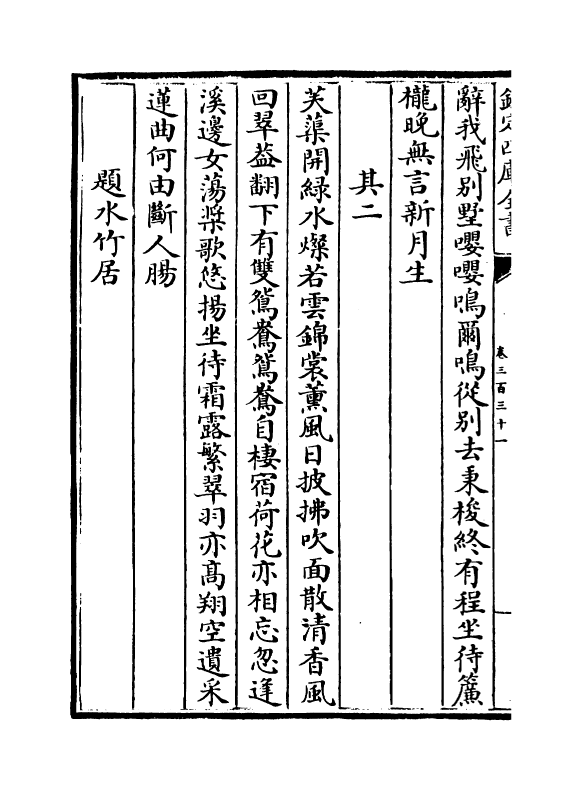 欽定四庫全書
卷三百三十一
辭我飛别墅嚶嚶鳴爾鳴從别去秉梭終有程坐待簾
櫳晚無言新月生
其二
芙蕖開緑水燦若雲錦裳薰風日披拂吹面散清香風
回翠葢翻下有雙鴛鴦鴛鴦自棲宿荷花亦相忘忽逢
溪邊女蕩槳歌悠揚坐待霜露繁翠羽亦高翔空遺采
蓮曲何由斷人腸
題水竹居